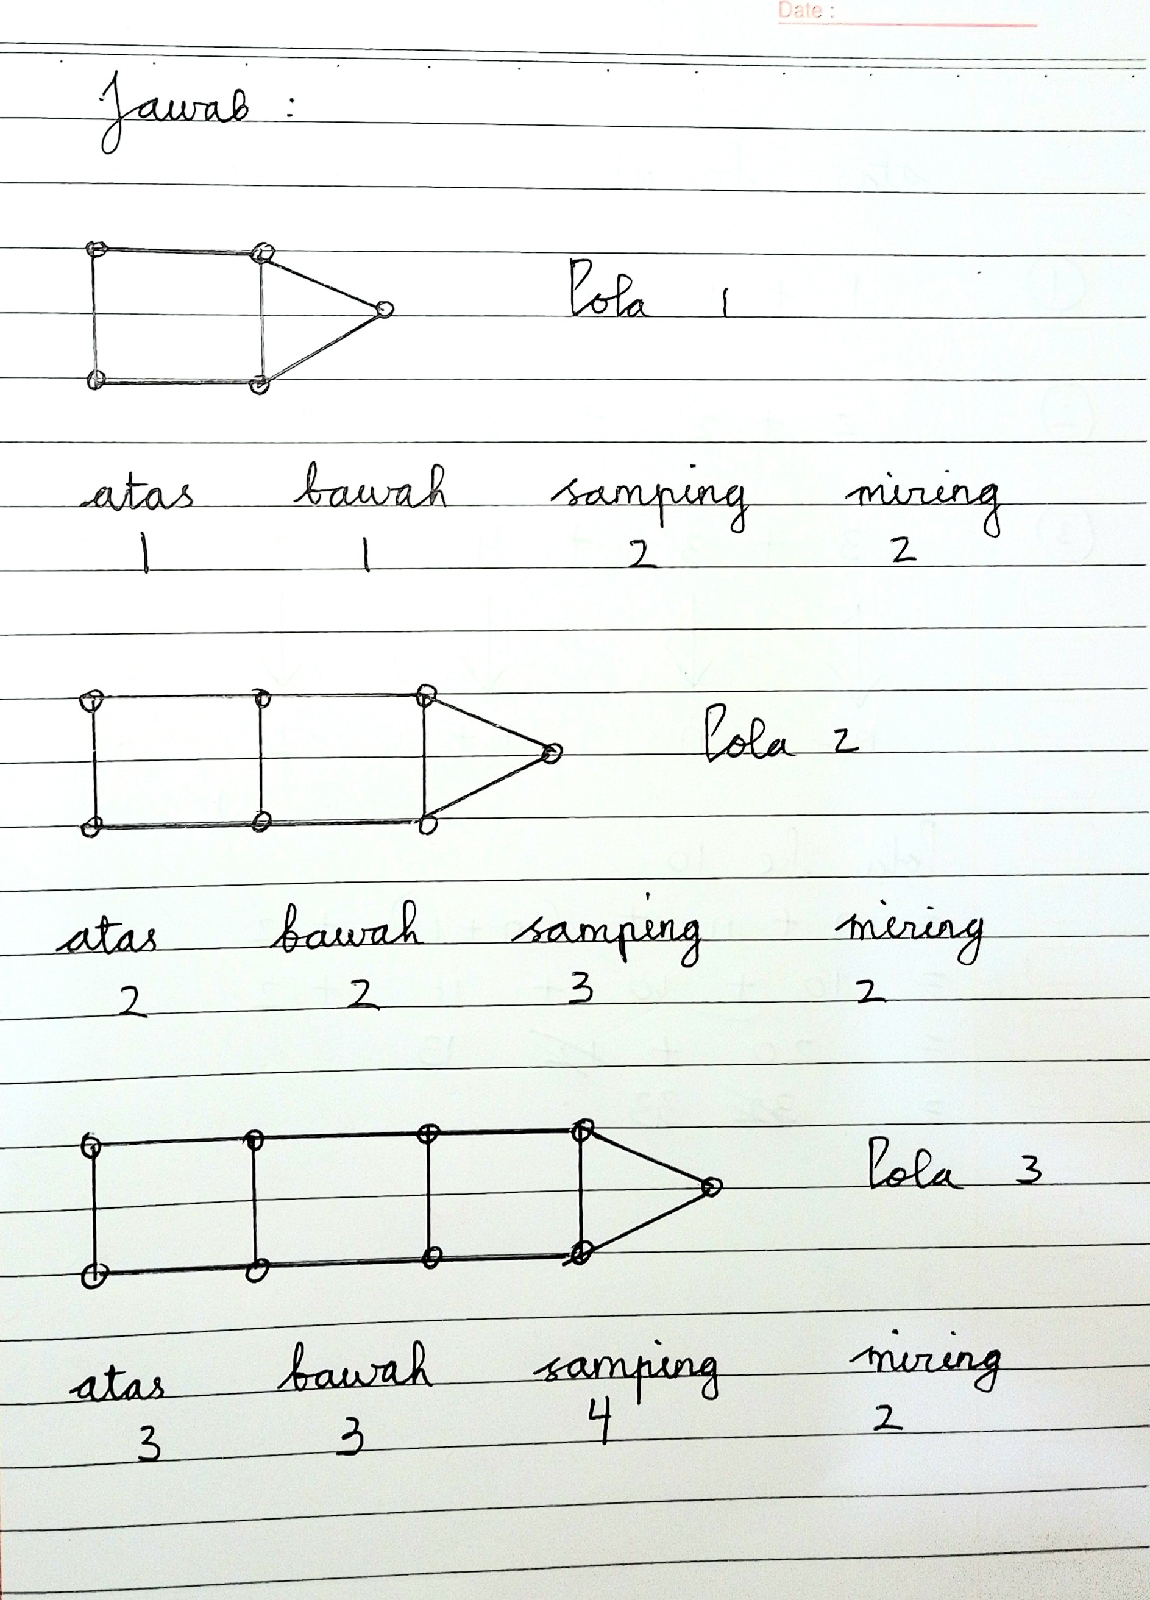 Date :
Jawab :
Pola 1
atas bawah samping miring
1 1 2 2
Pola 2
atas bawah samping miring
2 2 3 2
Pola 3
atas bawah samping miring
3 3 4 2